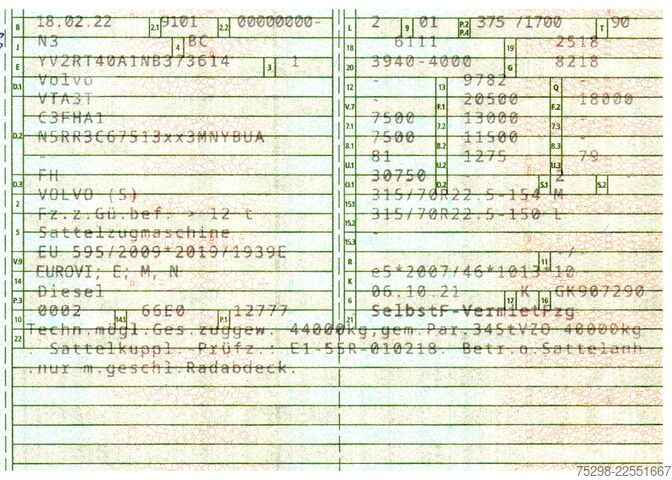 B 18.02.22 2.1 9101 2.2 00000000-
J N3 4 BC
E YV2RT40A1NB373614 3 1
D.1 Volvo
VTA3T
C3FHA1
D.2 N5RR3C67513xx3MNYBUA
-
D.3 FH
2 VOLVO (S)
Fz.z.Gü.bef. > 12 t
5 Sattelzugmaschine
V.9 EU 595/2009*2019/1939E
14 EUROVI; E; M, N
P.3 Diesel
10 0002 14.1 66E0 P.1 12777
L 2 9 01 P.2 P.4 375 /1700 T 90
18 6111 19 2518
20 3940-4000 G 8218
12 - 13 9782 Q -
V.7 - F.1 20500 F.2 18000
7.1 7500 7.2 13000 7.3 -
8.1 7500 8.2 11500 8.3 -
U.1 81 U.2 1275 U.3 79
O.1 30750 O.2 - S.1 2 S.2
15.1 315/70R22.5-154 M
15.2 315/70R22.5-150 L
15.3 -
R - 11 -/-
K e5*2007/46*1013*10
6 06.10.21 17 K 16 GK907290
21 SelbstF-VermietPzg
22 Techn.mögl.Ges.zuggew. 44000kg,gem.Par.34StVZO 40000kg
Sattelkuppl. Prüfz.: E1-55R-010218. Betr.o.Sattelanh
.nur m.geschl.Radabdeck.
75298-22551667